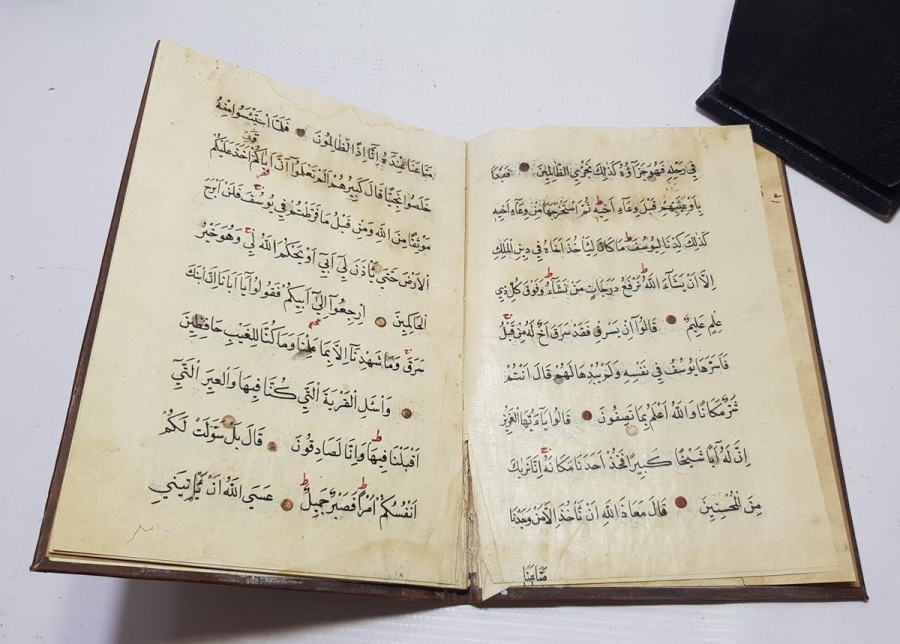 فِي رَحْلِهِ فَهُوَ جَزَآؤُهُ كَذٰلِكَ نَجْزِي الظَّالِمِينَ فَبَدَأَ
بِاَوْعِيَتِهِمْ قَبْلَ وِعَاءِ اَخِيهِ ثُمَّ اسْتَخْرَجَهَا مِنْ وِعَاءِ اَخِيهِ
كَذٰلِكَ كِدْنَا لِيُوسُفَ مَا كَانَ لِيَأْخُذَ اَخَاهُ فِي دِينِ الْمَلِكِ
اِلَّا اَنْ يَشَآءَ اللّٰهُ نَرْفَعُ دَرَجَاتٍ مَنْ نَشَآءُ وَفَوْقَ كُلِّ ذِي
عِلْمٍ عَلِيمٌ قَالُوآ اِنْ يَسْرِقْ فَقَدْ سَرَقَ اَخٌ لَهُ مِنْ قَبْلُ
فَاَسَرَّهَا يُوسُفُ فِي نَفْسِهِ وَلَمْ يُبْدِهَا لَهُمْ قَالَ اَنْتُمْ
شَرٌّ مَكَانًا وَاللّٰهُ اَعْلَمُ بِمَا تَصِفُونَ قَالُوا يَآ اَيُّهَا الْعَزِيزُ
اِنَّ لَهُ اَبًا شَيْخًا كَبِيرًا فَخُذْ اَحَدَنَا مَكَانَهُ اِنَّا نَرٰيكَ
مِنَ الْمُحْسِنِينَ قَالَ مَعَاذَ اللّٰهِ اَنْ نَأْخُذَ اِلَّا مَنْ وَجَدْنَا
مَتَاعَنَا
مَتَاعَنَا عِنْدَهُ اِنَّآ اِذًا لَظَالِمُونَ فَلَمَّا اسْتَيْئَسُوا مِنْهُ
قَدْ
خَلَصُوا نَجِيًّا قَالَ كَبِيرُهُمْ اَلَمْ تَعْلَمُوآ اَنَّ اَبَاكُمْ اَخَذَ عَلَيْكُمْ
مَوْثِقًا مِنَ اللّٰهِ وَمِنْ قَبْلُ مَا فَرَّطْتُمْ فِي يُوسُفَ فَلَنْ اَبْرَحَ
الْاَرْضَ حَتّٰى يَأْذَنَ لِي اَبِي اَوْ يَحْكُمَ اللّٰهُ لِي وَهُوَ خَيْرُ
الْحَاكِمِينَ اِرْجِعُوآ اِلٰى اَبِيكُمْ فَقُولُوا يَآ اَبَانَآ اِنَّ ابْنَكَ
سَرَقَ وَمَا شَهِدْنَآ اِلَّا بِمَا عَلِمْنَا وَمَا كُنَّا لِلْغَيْبِ حَافِظِينَ
وَاسْئَلِ الْقَرْيَةَ الَّتِي كُنَّا فِيهَا وَالْعِيرَ الَّتِي
اَقْبَلْنَا فِيهَا وَاِنَّا لَصَادِقُونَ قَالَ بَلْ سَوَّلَتْ لَكُمْ
اَنْفُسُكُمْ اَمْرًا فَصَبْرٌ جَمِيلٌ عَسَى اللّٰهُ اَنْ يَأْتِيَنِي